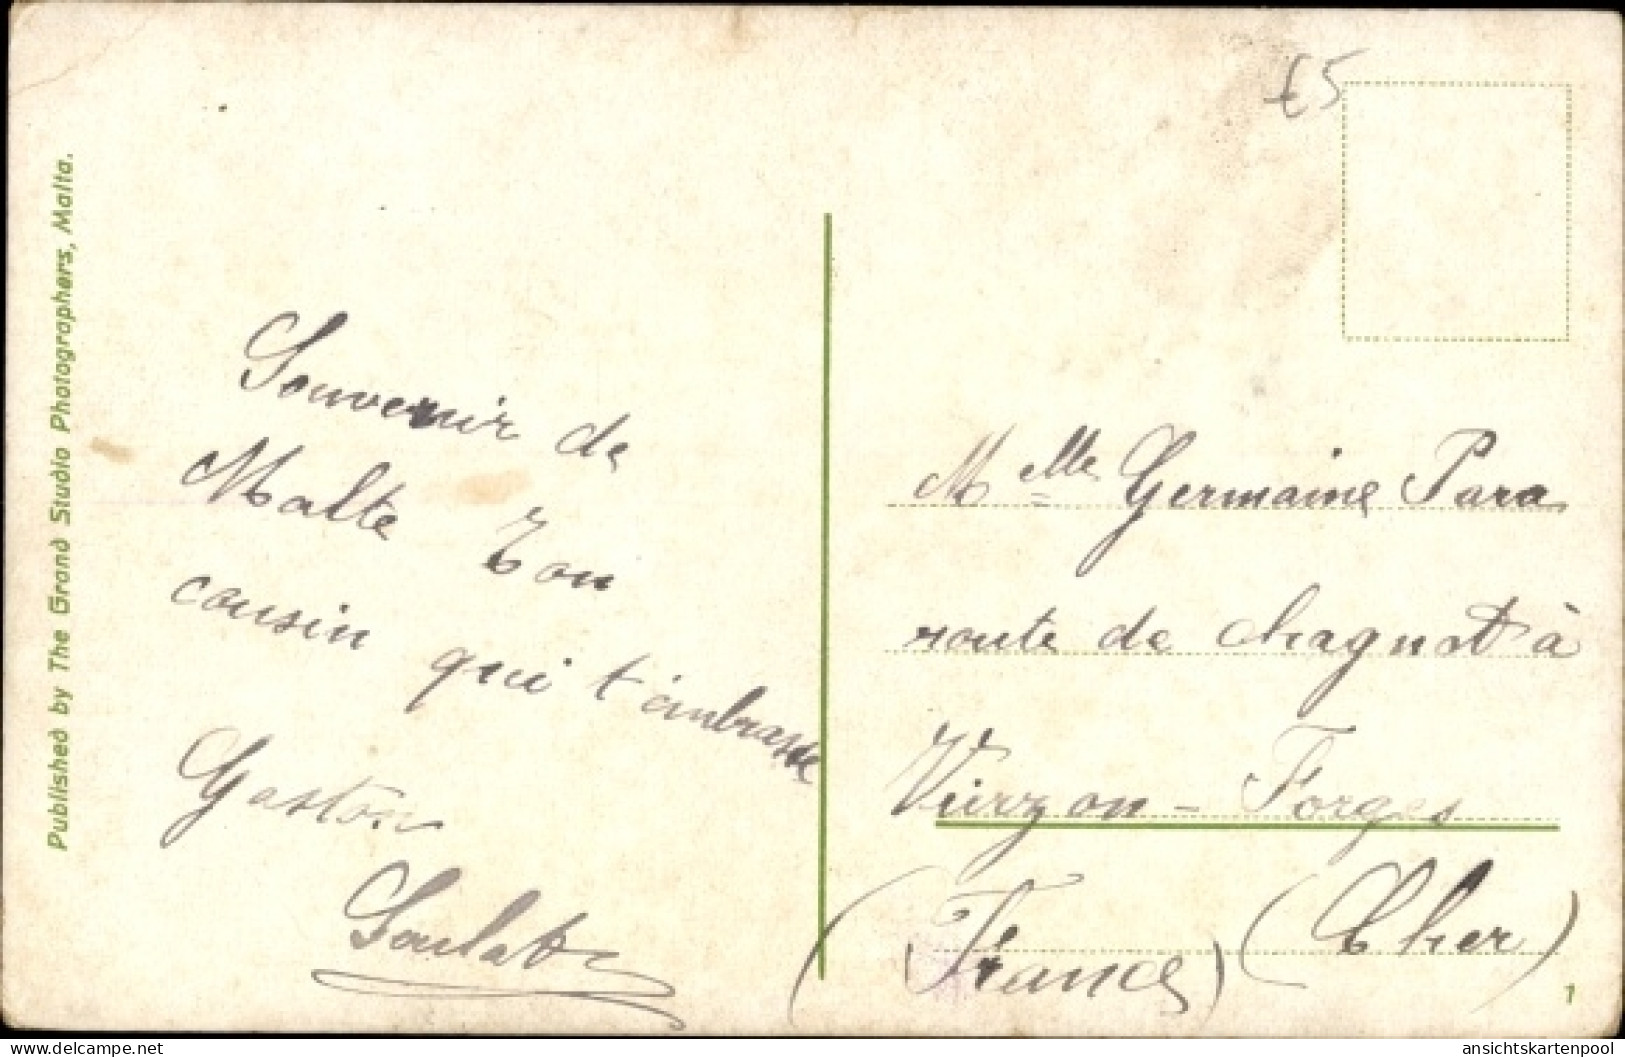 Published by The Grand Studio Photographers, Malta.
£5
Souvenir de
Malte Ton
cousin qui t'embrasse
Gaston
Mlle Germaine Para
route de Chagnat à
Vierzon - Forges
(France) (Cher)
1
delcampe.net
ansichtskartenpool